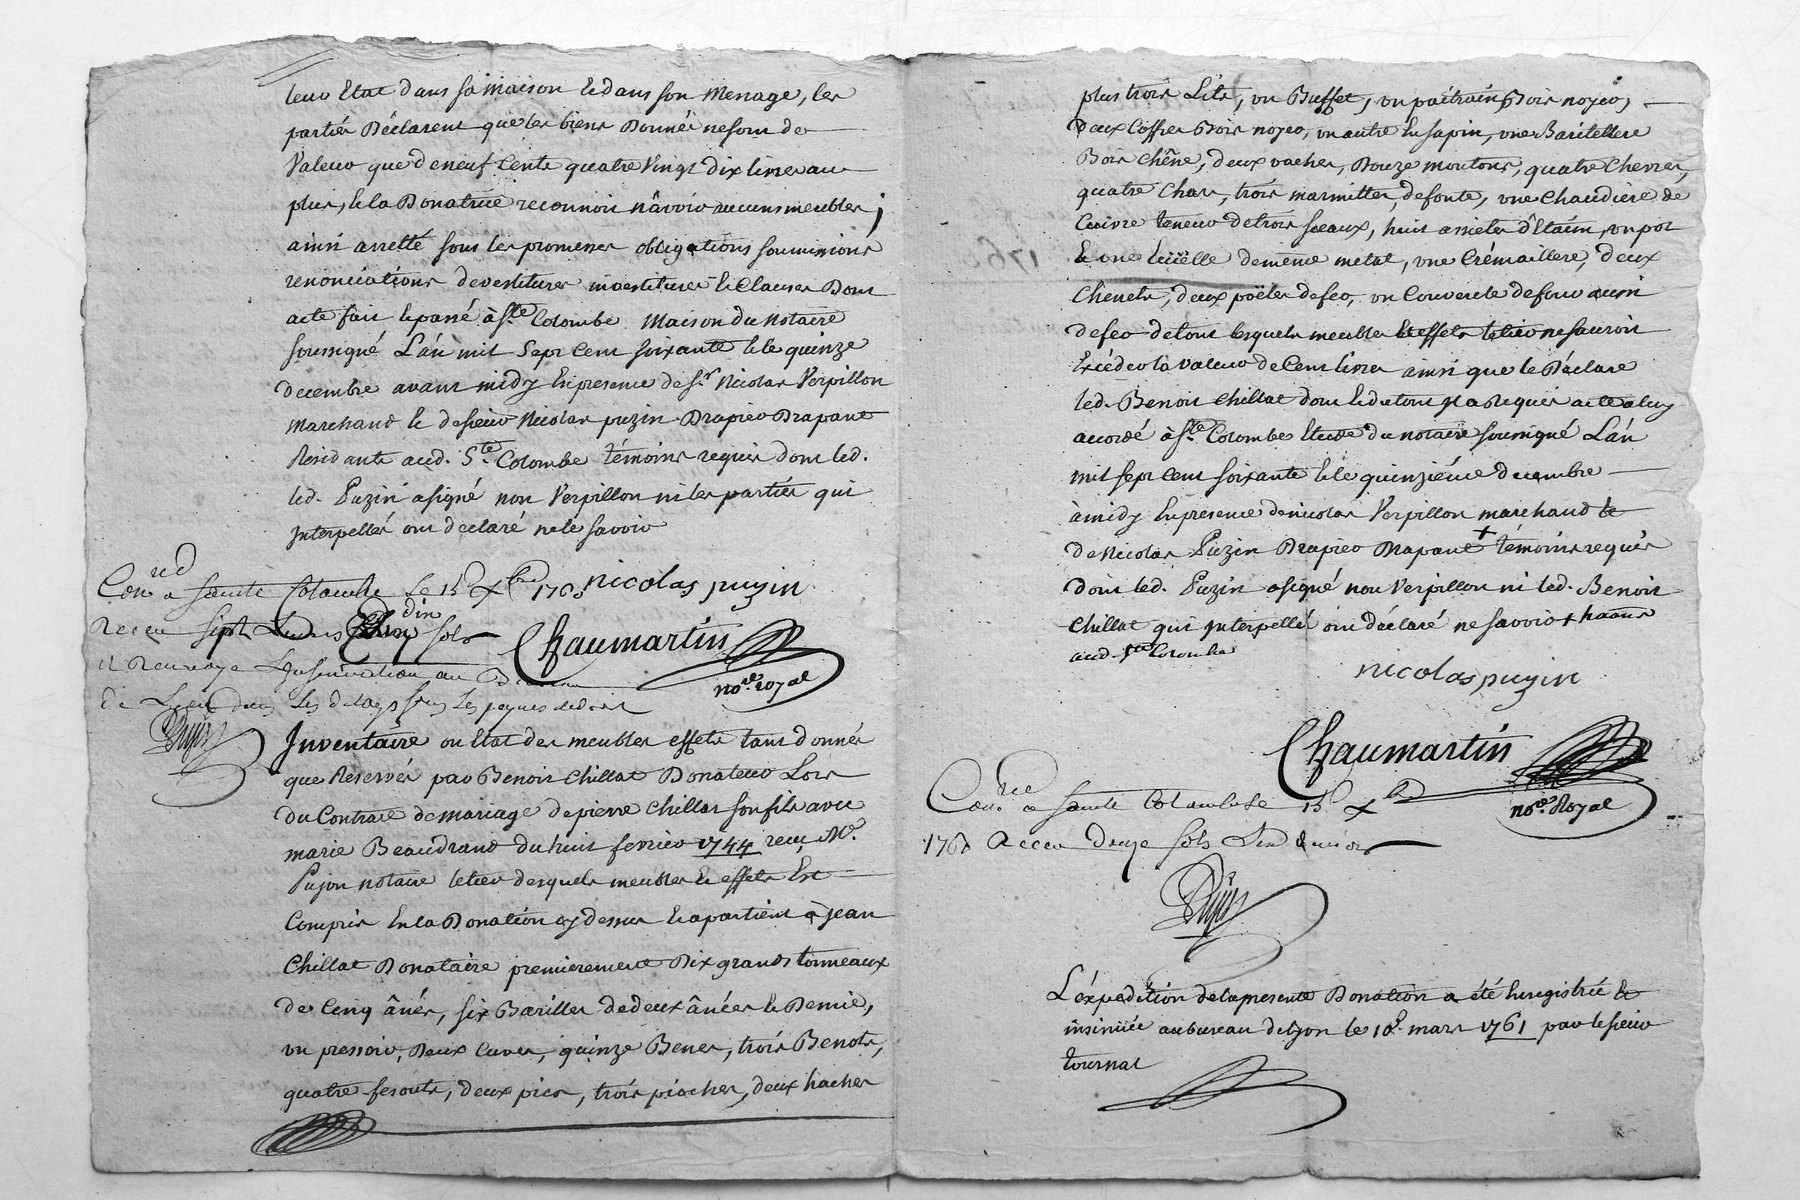 leur Etat dans sa maison et dans son menage, les
parties Déclarent que les biens Donnés ne sont de
Valeur que de neuf cents quatre Vingt dix livres au
plus, et la Donatrice reconnoit n'avoir aucuns meubles;
ainsi arretté sous les promesses obligations soumissions
renonciations devestitures investitures et Clauses Dont
acte fait et passé à Ste. Colombe Maison du Notaire
soussigné L'an mil Sept Cent soixante et le quinze
decembre avant midy En presence de Sr. Nicolas Verpillon
Marchand et de sieur Nicolas puzin Drapier Drapant
Residants aud. Ste. Colombe témoins requis dont led.
led. Puzin a signé non Verpillon ni les parties qui
Interpellés ont declaré ne le savoir
nicolas puzin
Chaumartin
no.re royal
Con.red a sainte Colombe le 15 Xbre 1760
Receu sept Livres dix sols
et Renvoye L'insinuation au Bureau
de Lyon dans les delays sous les peynes de droit
Inventaire ou Etat des meubles effets tant donnés
que Reservés par Benoit Chillat Donateur Lors
du Contrat de mariage de pierre Chillat son fils avec
marie Beaudrand du huit fevrier 1744 reçu Me.
Pujon notaire le tiers desquels meubles et effets Est
Compris En la Donation cy dessus et apartient à Jean
Chillat Donataire premierement Dix grands tonneaux
de Cinq ânés, six Barilles de deux ânées et Demie,
un pressoir, Deux Cuves, quinze Benes, trois Benots,
quatre fesouts, deux pics, trois pioches, deux haches
plus trois Lits, un Buffet, un paitrain Bois noyer,
Deux Coffres Bois noyer, un autre En sapin, une Baritellere
Bois Chêne, deux vaches, Douze moutons, quatre Chevres,
quatre Chars, trois marmittes de fonte, une Chaudiere de
Cuivre teneur de trois seaux, huit assietes d'Etaim, un pot
et une Ecuëlle de même metal, une Crémaillere, deux
Chenets, deux poëles de fer, un Couvercle de four aussi
de fer de tous lesquels meubles et effets le tiers ne sauroit
Excéder la valeur de Cent livres ainsi que le Déclare
led. Benoit Chillat dont et de tout il a Requis acte a luy
accordé à Ste. Colombe Etude du notaire soussigné L'an
mil sept cent soixante et le quinzieme decembre
à midy En presence de nicolas Verpillon marchand et
de Nicolas Puzin Drapier Drapant + témoins requis
dont led. Puzin a signé non Verpillon ni led. Benoit
Chillat qui Interpellé ont déclaré ne savoir +
aud. Ste Colombe
nicolas puzin
Chaumartin
no.re Royal
Con.red a sainte Colombe le 15 Xbre
1760 Receu Douze sols Six deniers
L'expedition de la presente Donation a été Enregistrée et
insinuée au bureau de Lyon le 10e. mars 1761 par le sieur
tournal